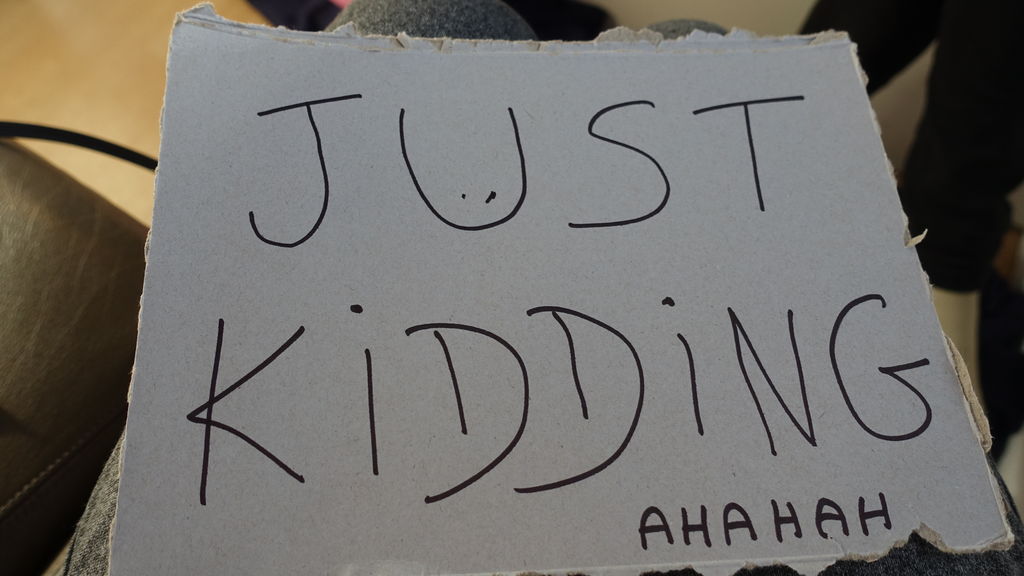 JUST
KiDDiNG
AHAHAH